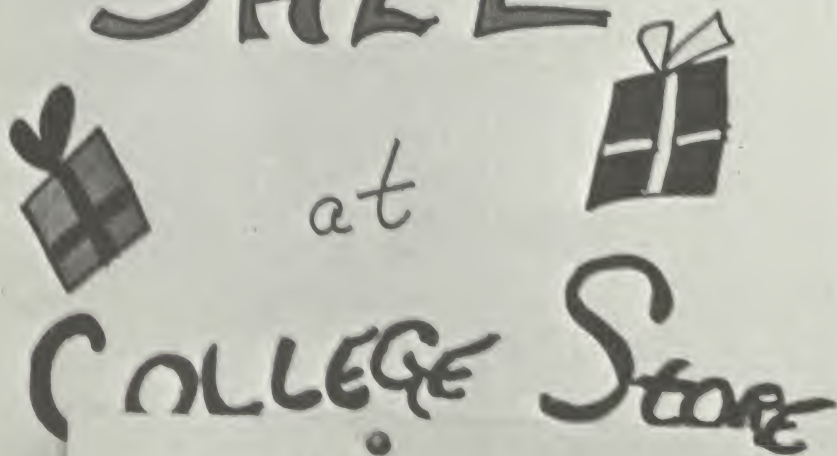 SALE
at
COLLEGE STORE